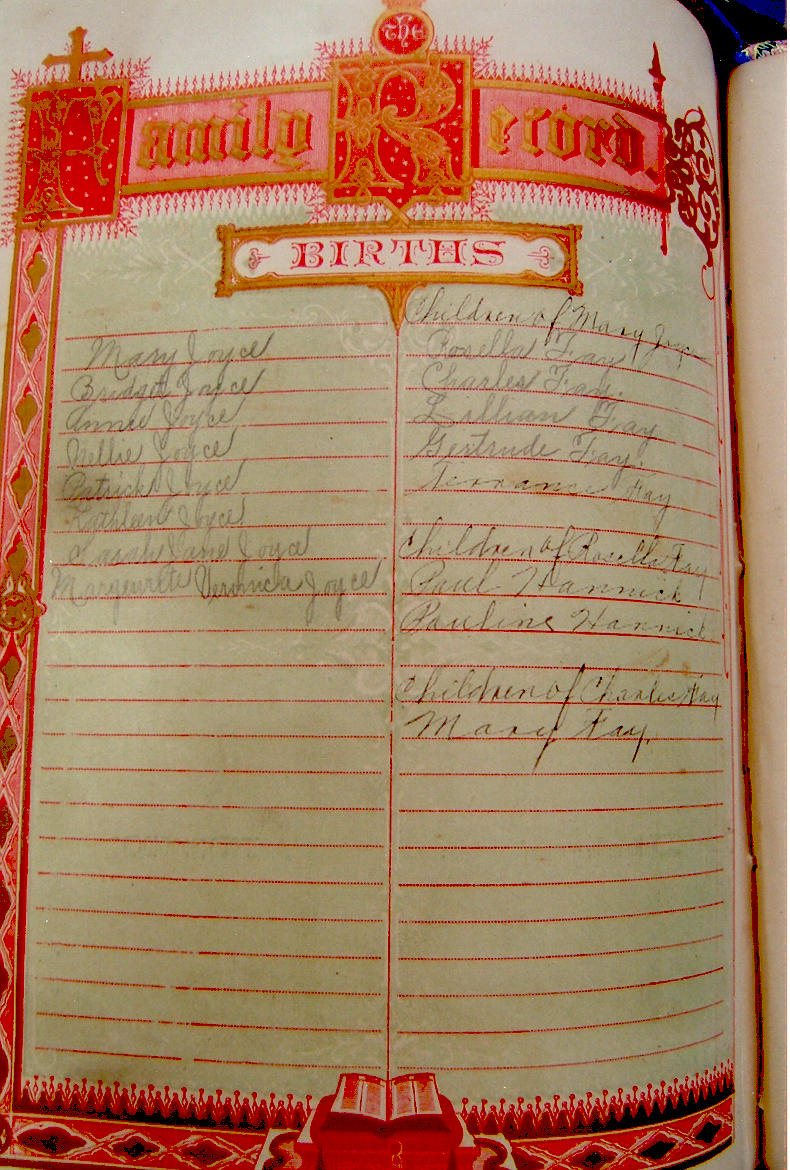 the
Family Record.
BIRTHS
Mary Joyce
Bridget Joyce
Annie Joyce
Nellie Joyce
Patrick Joyce
Kathleen Joyce
Sarah Jane Joyce
Margeurete Veronica Joyce
Children of Mary Joyce
Rosella Fay
Charles Fay.
Lillian Fay
Gertrude Fay.
Terrance Fay
Children of Rosella Fay
Paul Hannick
Pauline Hannick
Children of Charles Fay
Mary Fay.